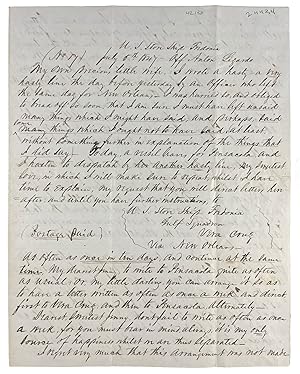 42150
24424
U. S. Store Ship Fredonia
(No 17) July 6th 1847 Off Anton Lizardo
My own precious little wife, I wrote a hasty, a very
hasty line the day before yesterday by an Officer who left
the same day for New Orleans. I was hurried so, and obliged
to break off so soon, that I am sure I must have left unsaid
many things which I might have said, and perhaps, said
some many things which I ought not to have said, at least,
without something further in explanation of the things that
I did say. To day, a vessel leaves for Pensacola and
I hasten to despatch you another hasty line. My sweetest
love, in which I will make sure to repeat, whilst I have
time to explain, my request that you will direct letters, here
after and until you have further instructions, to
U. S. Store Ship Fredonia
Gulf Squadron
Postage Paid Vera Cruz
Via New Orleans
as often as once in ten days and continue at the same
time, My dearest Jenny, to write to Pensacola quite as often
as usual. Or, my little darling, you can arrange it so as
to have a letter written as often as once a week, and direct
first to Vera Cruz, and then to Pensacola alternately.
Dearest, sweetest Jenny, don't fail to write as often as once
a week, for you must bear in mind always, it is my only
source of happiness whilst we are thus separated.
I regret very much that this arrangement was not made